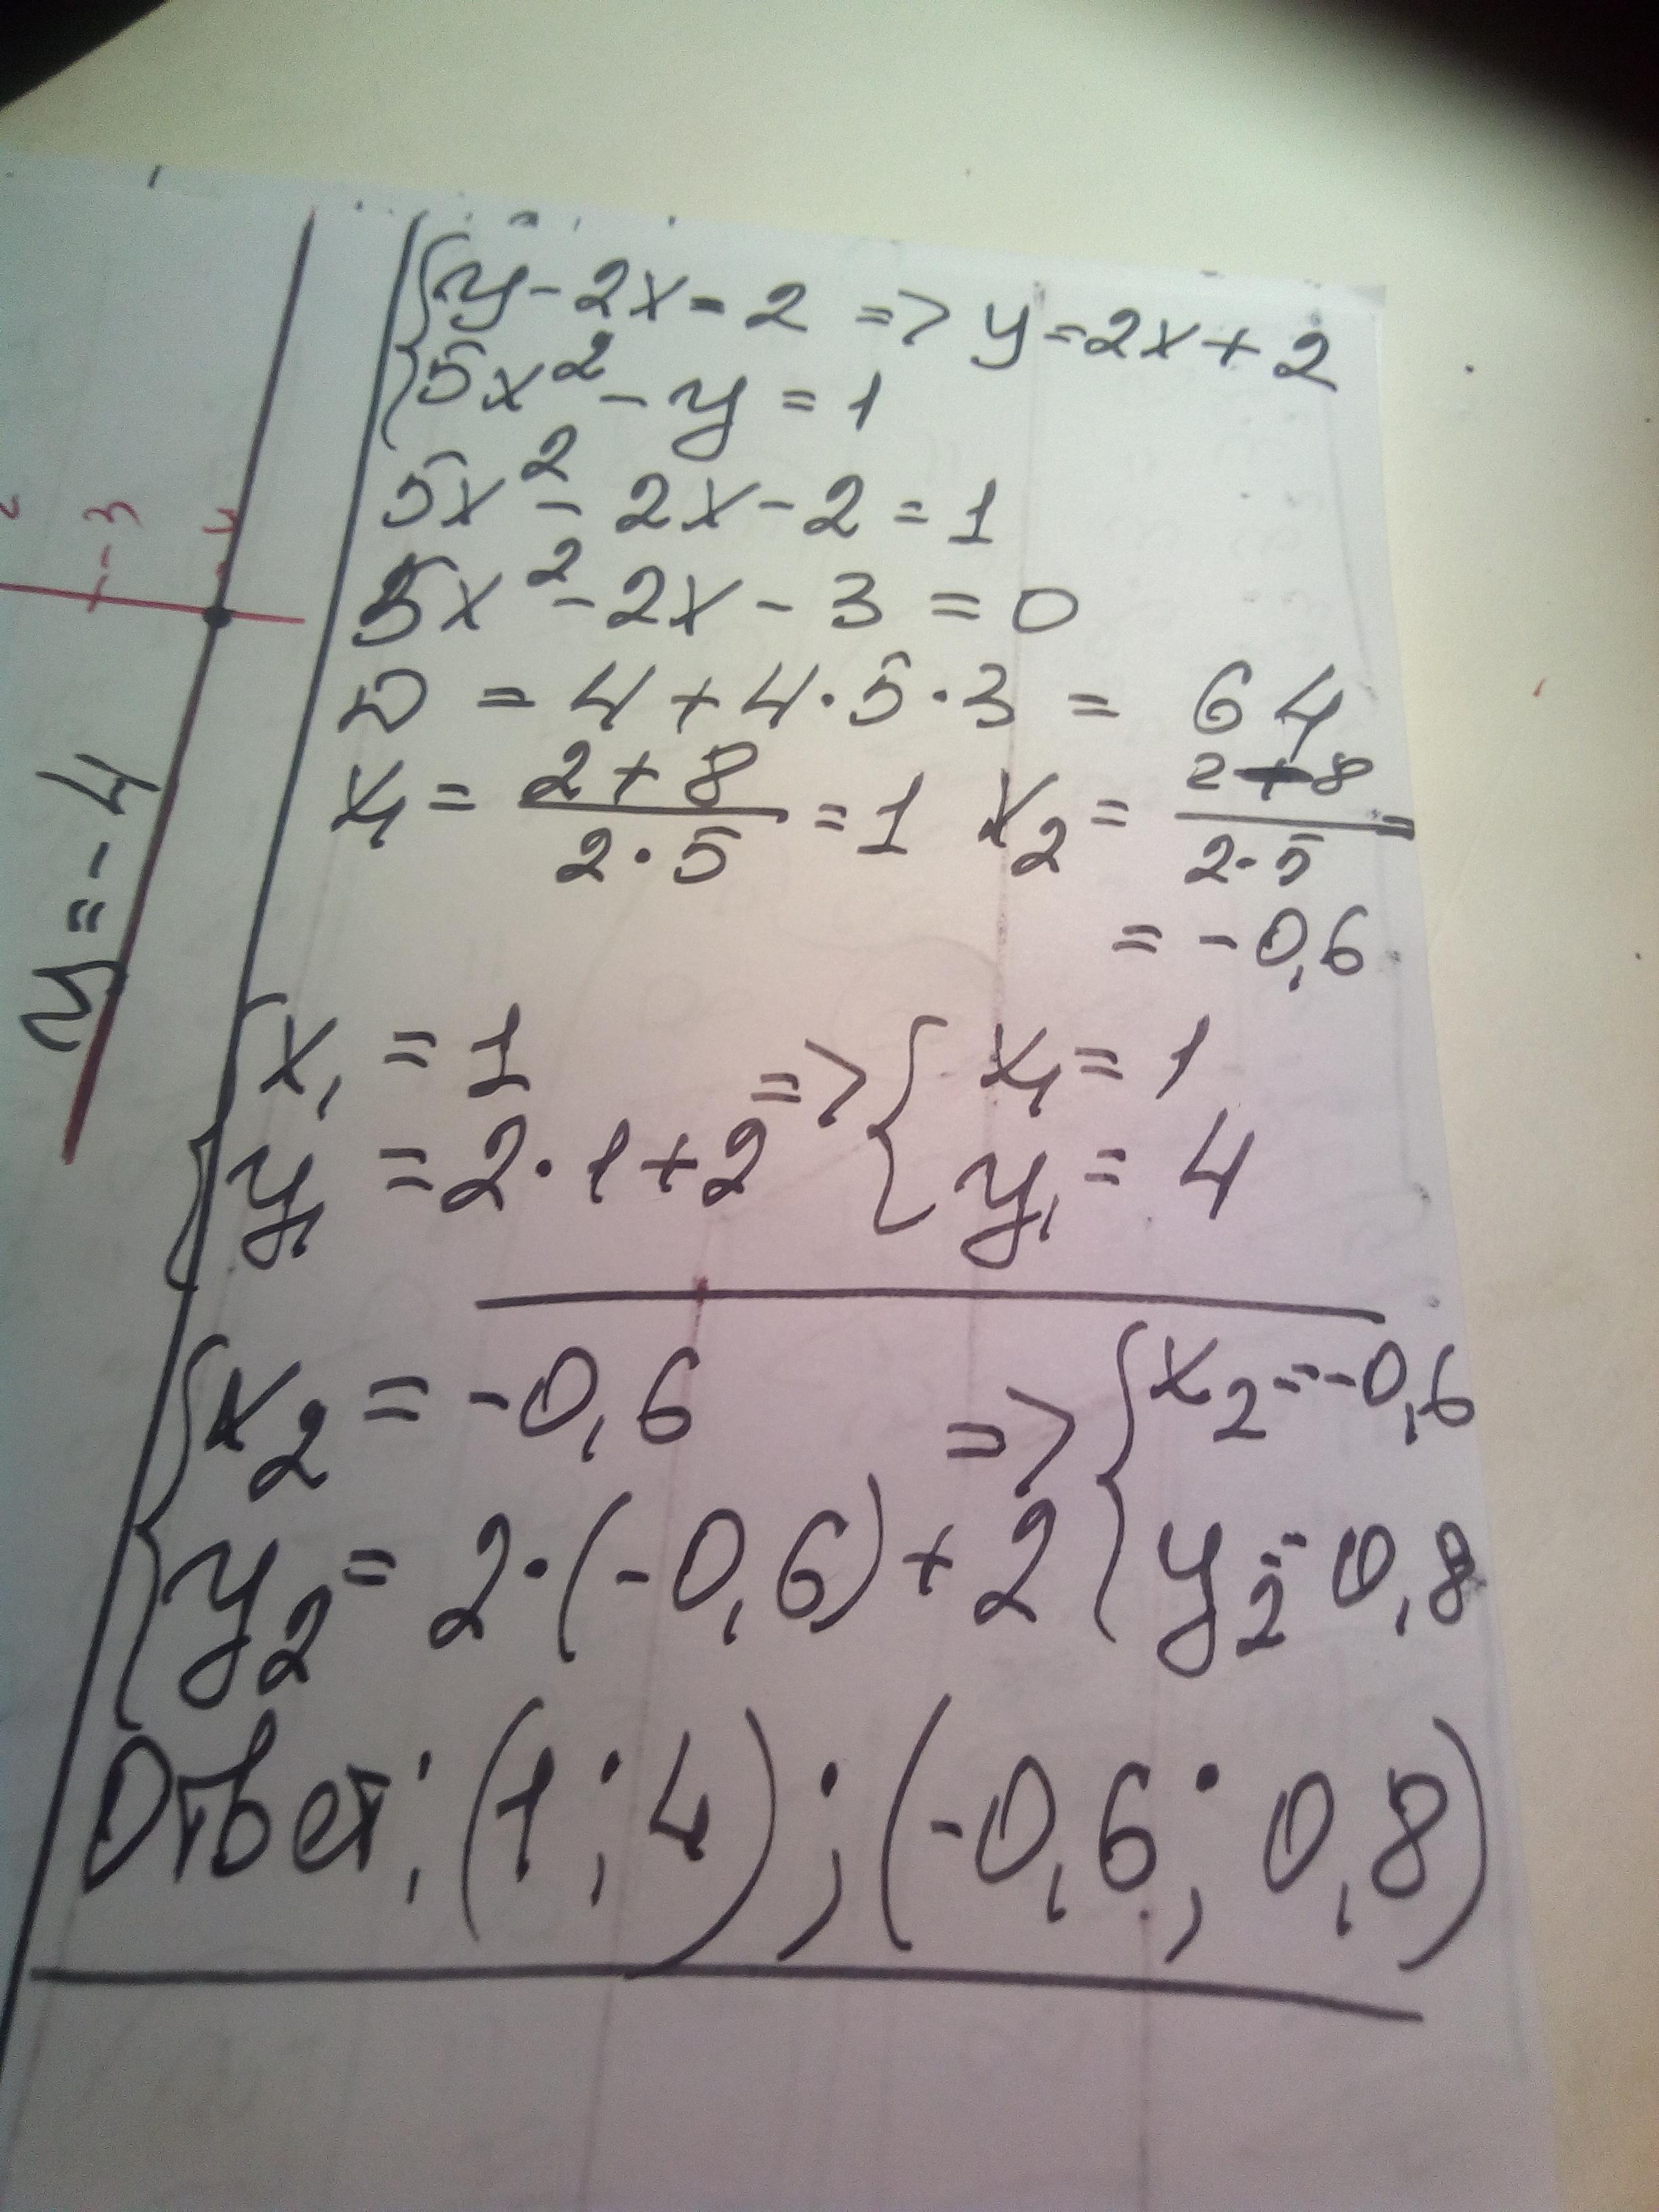 y = -4
-3
{ y - 2x = 2 => y = 2x + 2
{ 5x² - y = 1
5x² - 2x - 2 = 1
5x² - 2x - 3 = 0
D = 4 + 4·5·3 = 64
x₁ = (2 + 8)/(2·5) = 1 x₂ = (2 - 8)/(2·5) =
= -0,6
{ x₁ = 1 => { x₁ = 1
{ y₁ = 2·1 + 2 { y₁ = 4
{ x₂ = -0,6 => { x₂ = -0,6
{ y₂ = 2·(-0,6) + 2 { y₂ = 0,8
Ответ: (1; 4); (-0,6; 0,8)